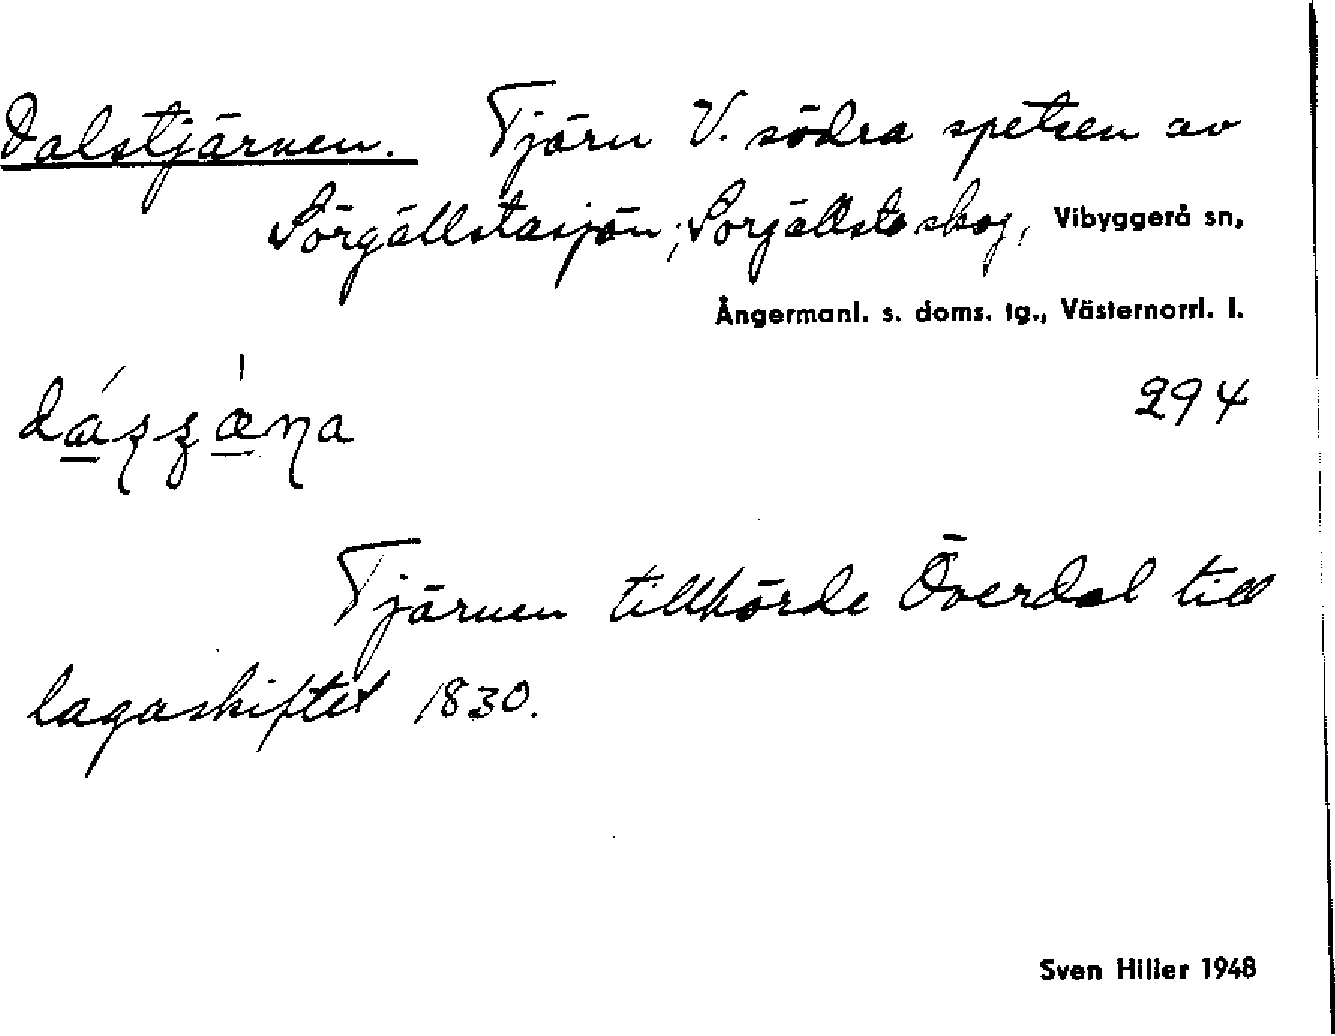 Dalstjärnen. Tjärn V. södra spetsen av
Sörgällstasjön; Sörgällsta skog, Vibyggerå sn,
Ångermanl. s. doms. tg., Västernorrl. l.
294
Tjärnen tillhörde Överdal till
lagaskiftet 1830.
Sven Hiller 1948